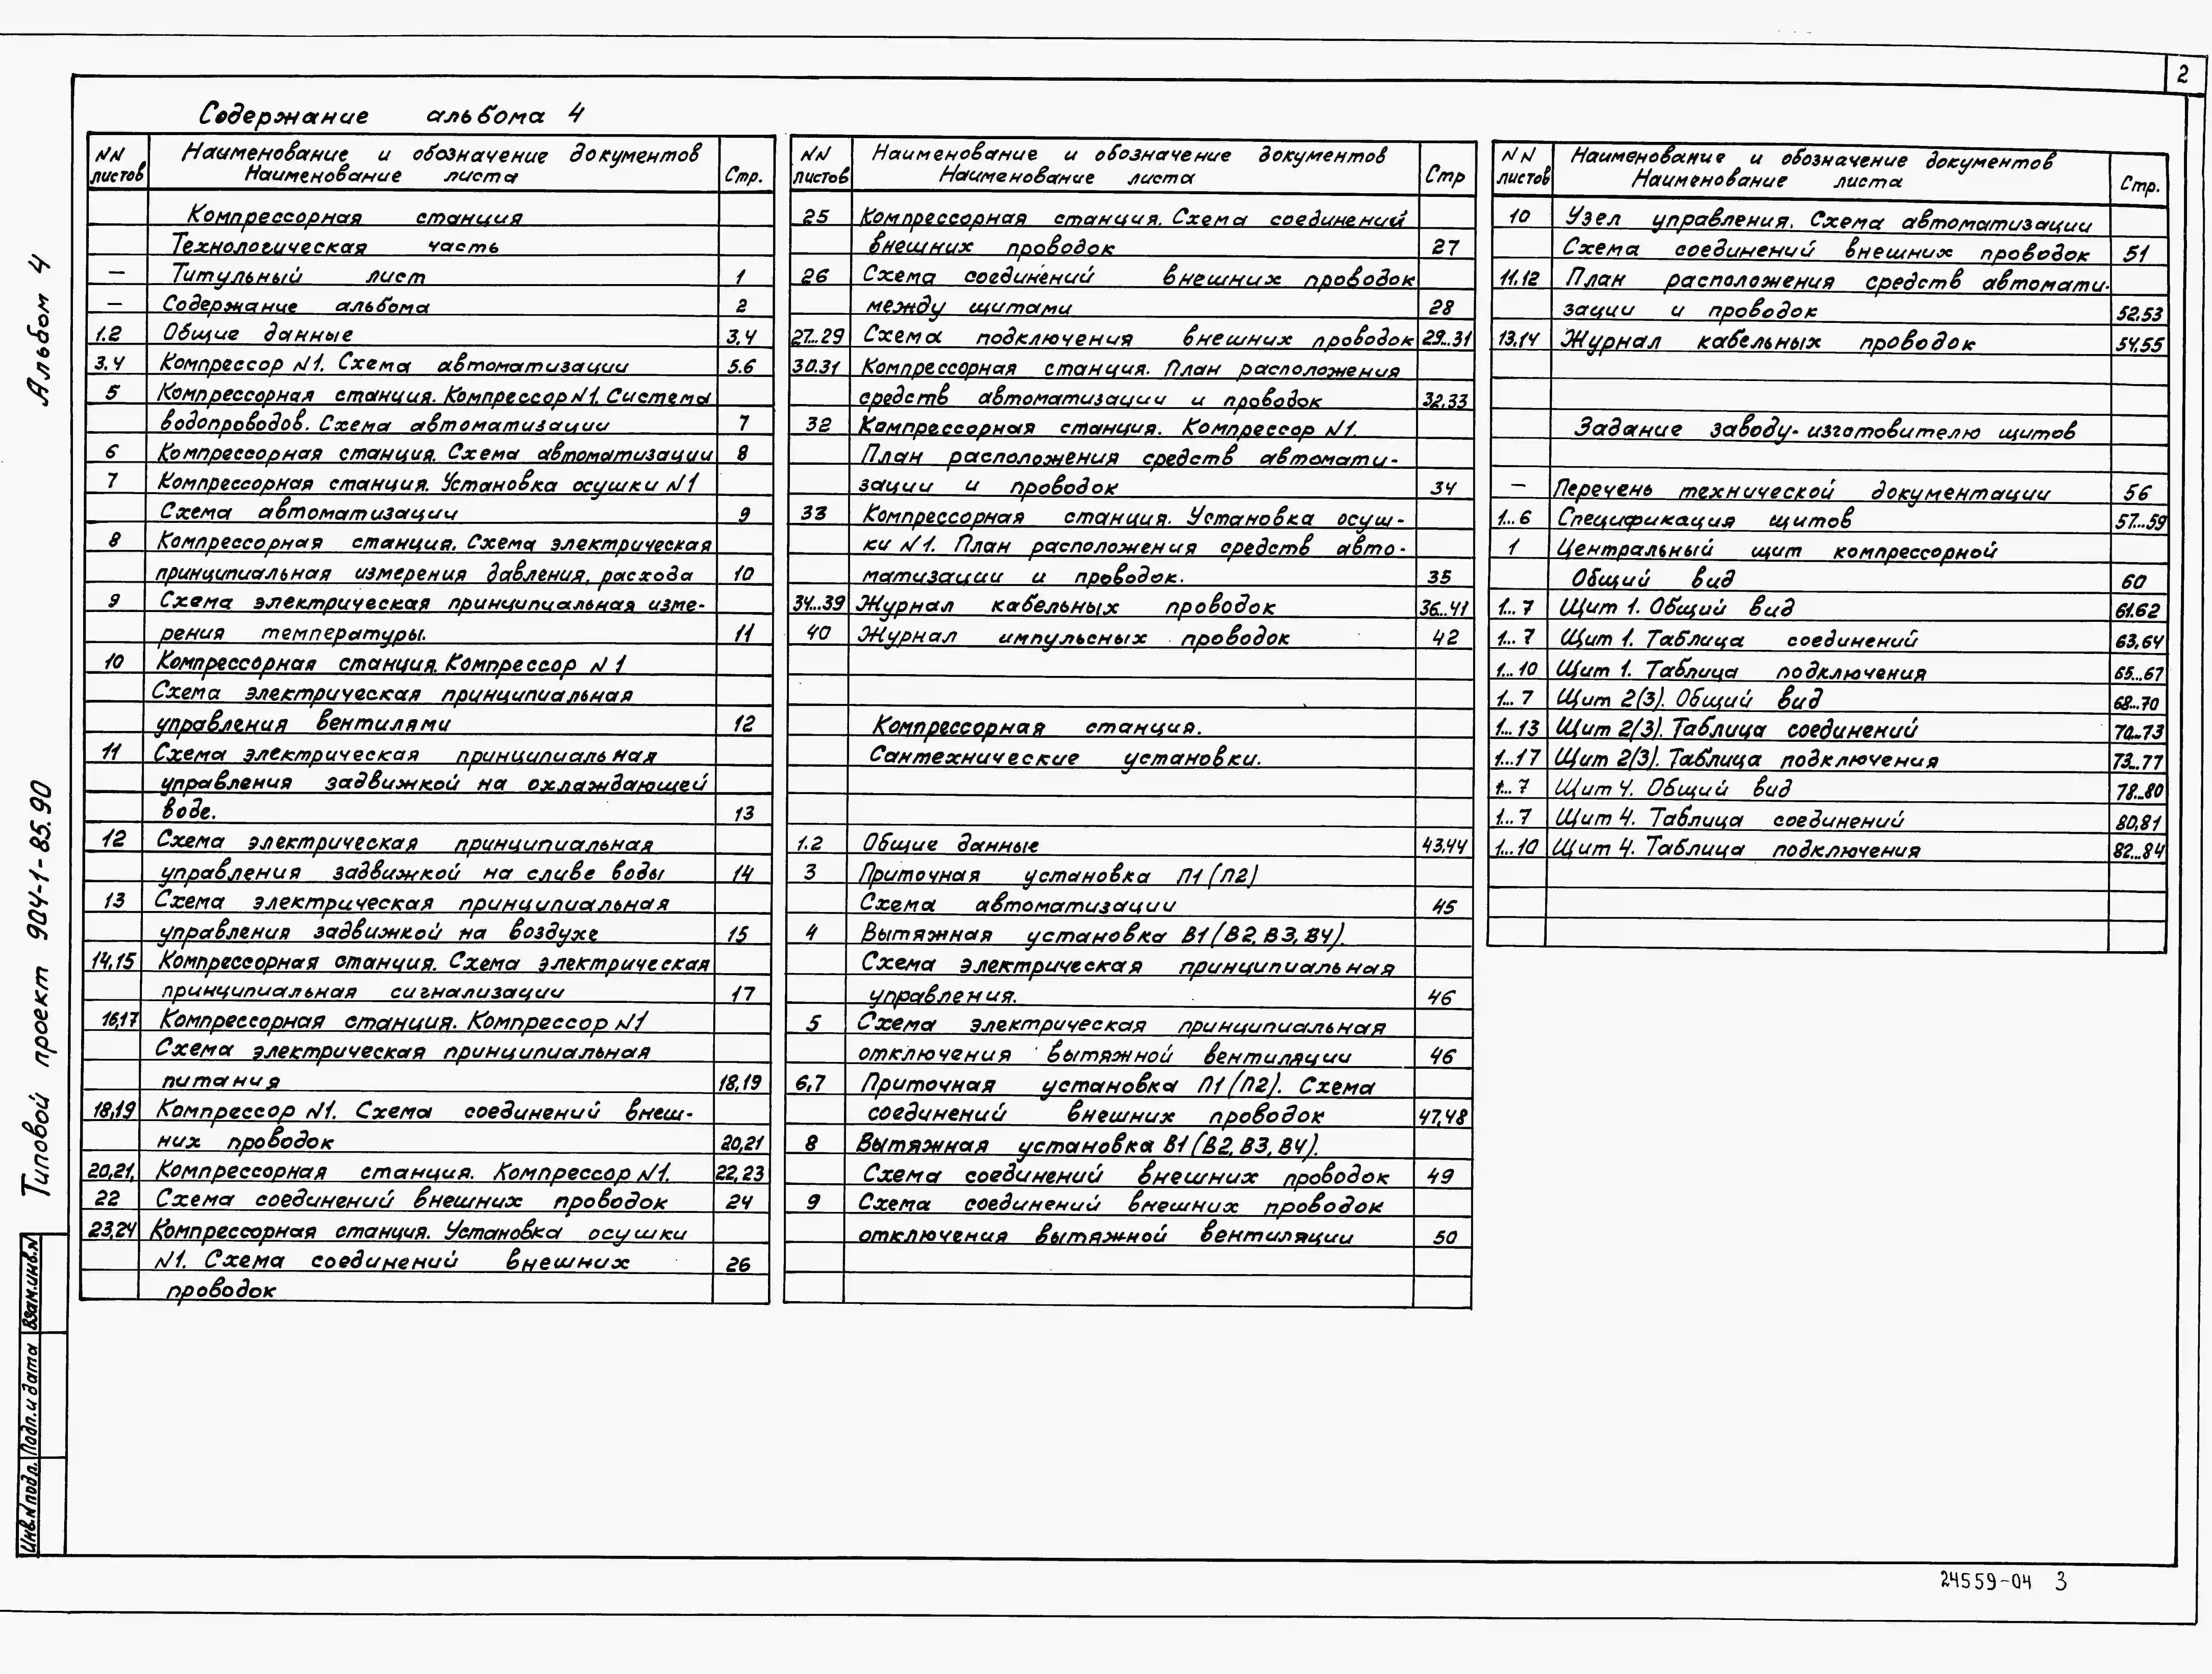 2
Содержание альбома 4
NN листов Наименование и обозначение документов Наименование листа Стр.
Компрессорная станция
Технологическая часть
— Титульный лист 1
— Содержание альбома 2
1.2 Общие данные 3,4
3.4 Компрессор N1. Схема автоматизации 5.6
5 Компрессорная станция. Компрессор N1. Система
водопроводов. Схема автоматизации 7
6 Компрессорная станция. Схема автоматизации 8
7 Компрессорная станция. Установка осушки N1
Схема автоматизации 9
8 Компрессорная станция. Схема электрическая
принципиальная измерения давления, расхода 10
9 Схема электрическая принципиальная изме-
рения температуры. 11
10 Компрессорная станция. Компрессор N1
Схема электрическая принципиальная
управления вентилями 12
11 Схема электрическая принципиальная
управления задвижкой на охлаждающей
воде. 13
12 Схема электрическая принципиальная
управления задвижкой на сливе воды 14
13 Схема электрическая принципиальная
управления задвижкой на воздухе 15
14,15 Компрессорная станция. Схема электрическая
принципиальная сигнализации 17
16,17 Компрессорная станция. Компрессор N1
Схема электрическая принципиальная
питания 18,19
18,19 Компрессор N1. Схема соединений внеш-
них проводок 20,21
20,21, Компрессорная станция. Компрессор N1. 22,23
22 Схема соединений внешних проводок 24
23,24 Компрессорная станция. Установка осушки
N1. Схема соединений внешних 26
проводок
NN листов Наименование и обозначение документов Наименование листа Стр
25 Компрессорная станция. Схема соединений
внешних проводок 27
26 Схема соединений внешних проводок
между щитами 28
27...29 Схема подключения внешних проводок 29...31
30.31 Компрессорная станция. План расположения
средств автоматизации и проводок 32.33
32 Компрессорная станция. Компрессор N1.
План расположения средств автомати-
зации и проводок 34
33 Компрессорная станция. Установка осуш-
ки N1. План расположения средств авто-
матизации и проводок. 35
34...39 Журнал кабельных проводок 36...41
40 Журнал импульсных проводок 42
Компрессорная станция.
Сантехнические установки.
1.2 Общие данные 43,44
3 Приточная установка П1 (П2)
Схема автоматизации 45
4 Вытяжная установка В1 (В2, В3, В4).
Схема электрическая принципиальная
управления. 46
5 Схема электрическая принципиальная
отключения вытяжной вентиляции 46
6,7 Приточная установка П1 (П2). Схема
соединений внешних проводок 47,48
8 Вытяжная установка В1 (В2, В3, В4).
Схема соединений внешних проводок 49
9 Схема соединений внешних проводок
отключения вытяжной вентиляции 50
NN листов Наименование и обозначение документов Наименование листа Стр.
10 Узел управления. Схема автоматизации
Схема соединений внешних проводок 51
11.12 План расположения средств автомати-
зации и проводок 52.53
13.14 Журнал кабельных проводок 54,55
Задание заводу-изготовителю щитов
— Перечень технической документации 56
1...6 Спецификация щитов 57...59
1 Центральный щит компрессорной
Общий вид 60
1...7 Щит 1. Общий вид 61.62
1...7 Щит 1. Таблица соединений 63,64
1...10 Щит 1. Таблица подключения 65...67
1...7 Щит 2(3). Общий вид 68...70
1...13 Щит 2(3). Таблица соединений 70...73
1...17 Щит 2(3). Таблица подключения 73...77
1...7 Щит 4. Общий вид 78...80
1...7 Щит 4. Таблица соединений 80,81
1...10 Щит 4. Таблица подключения 82...84
Альбом 4
Типовой проект 904-1-85.90
Взам.инв.N
Подп.и дата
Инв.N подл.
24559-04 3